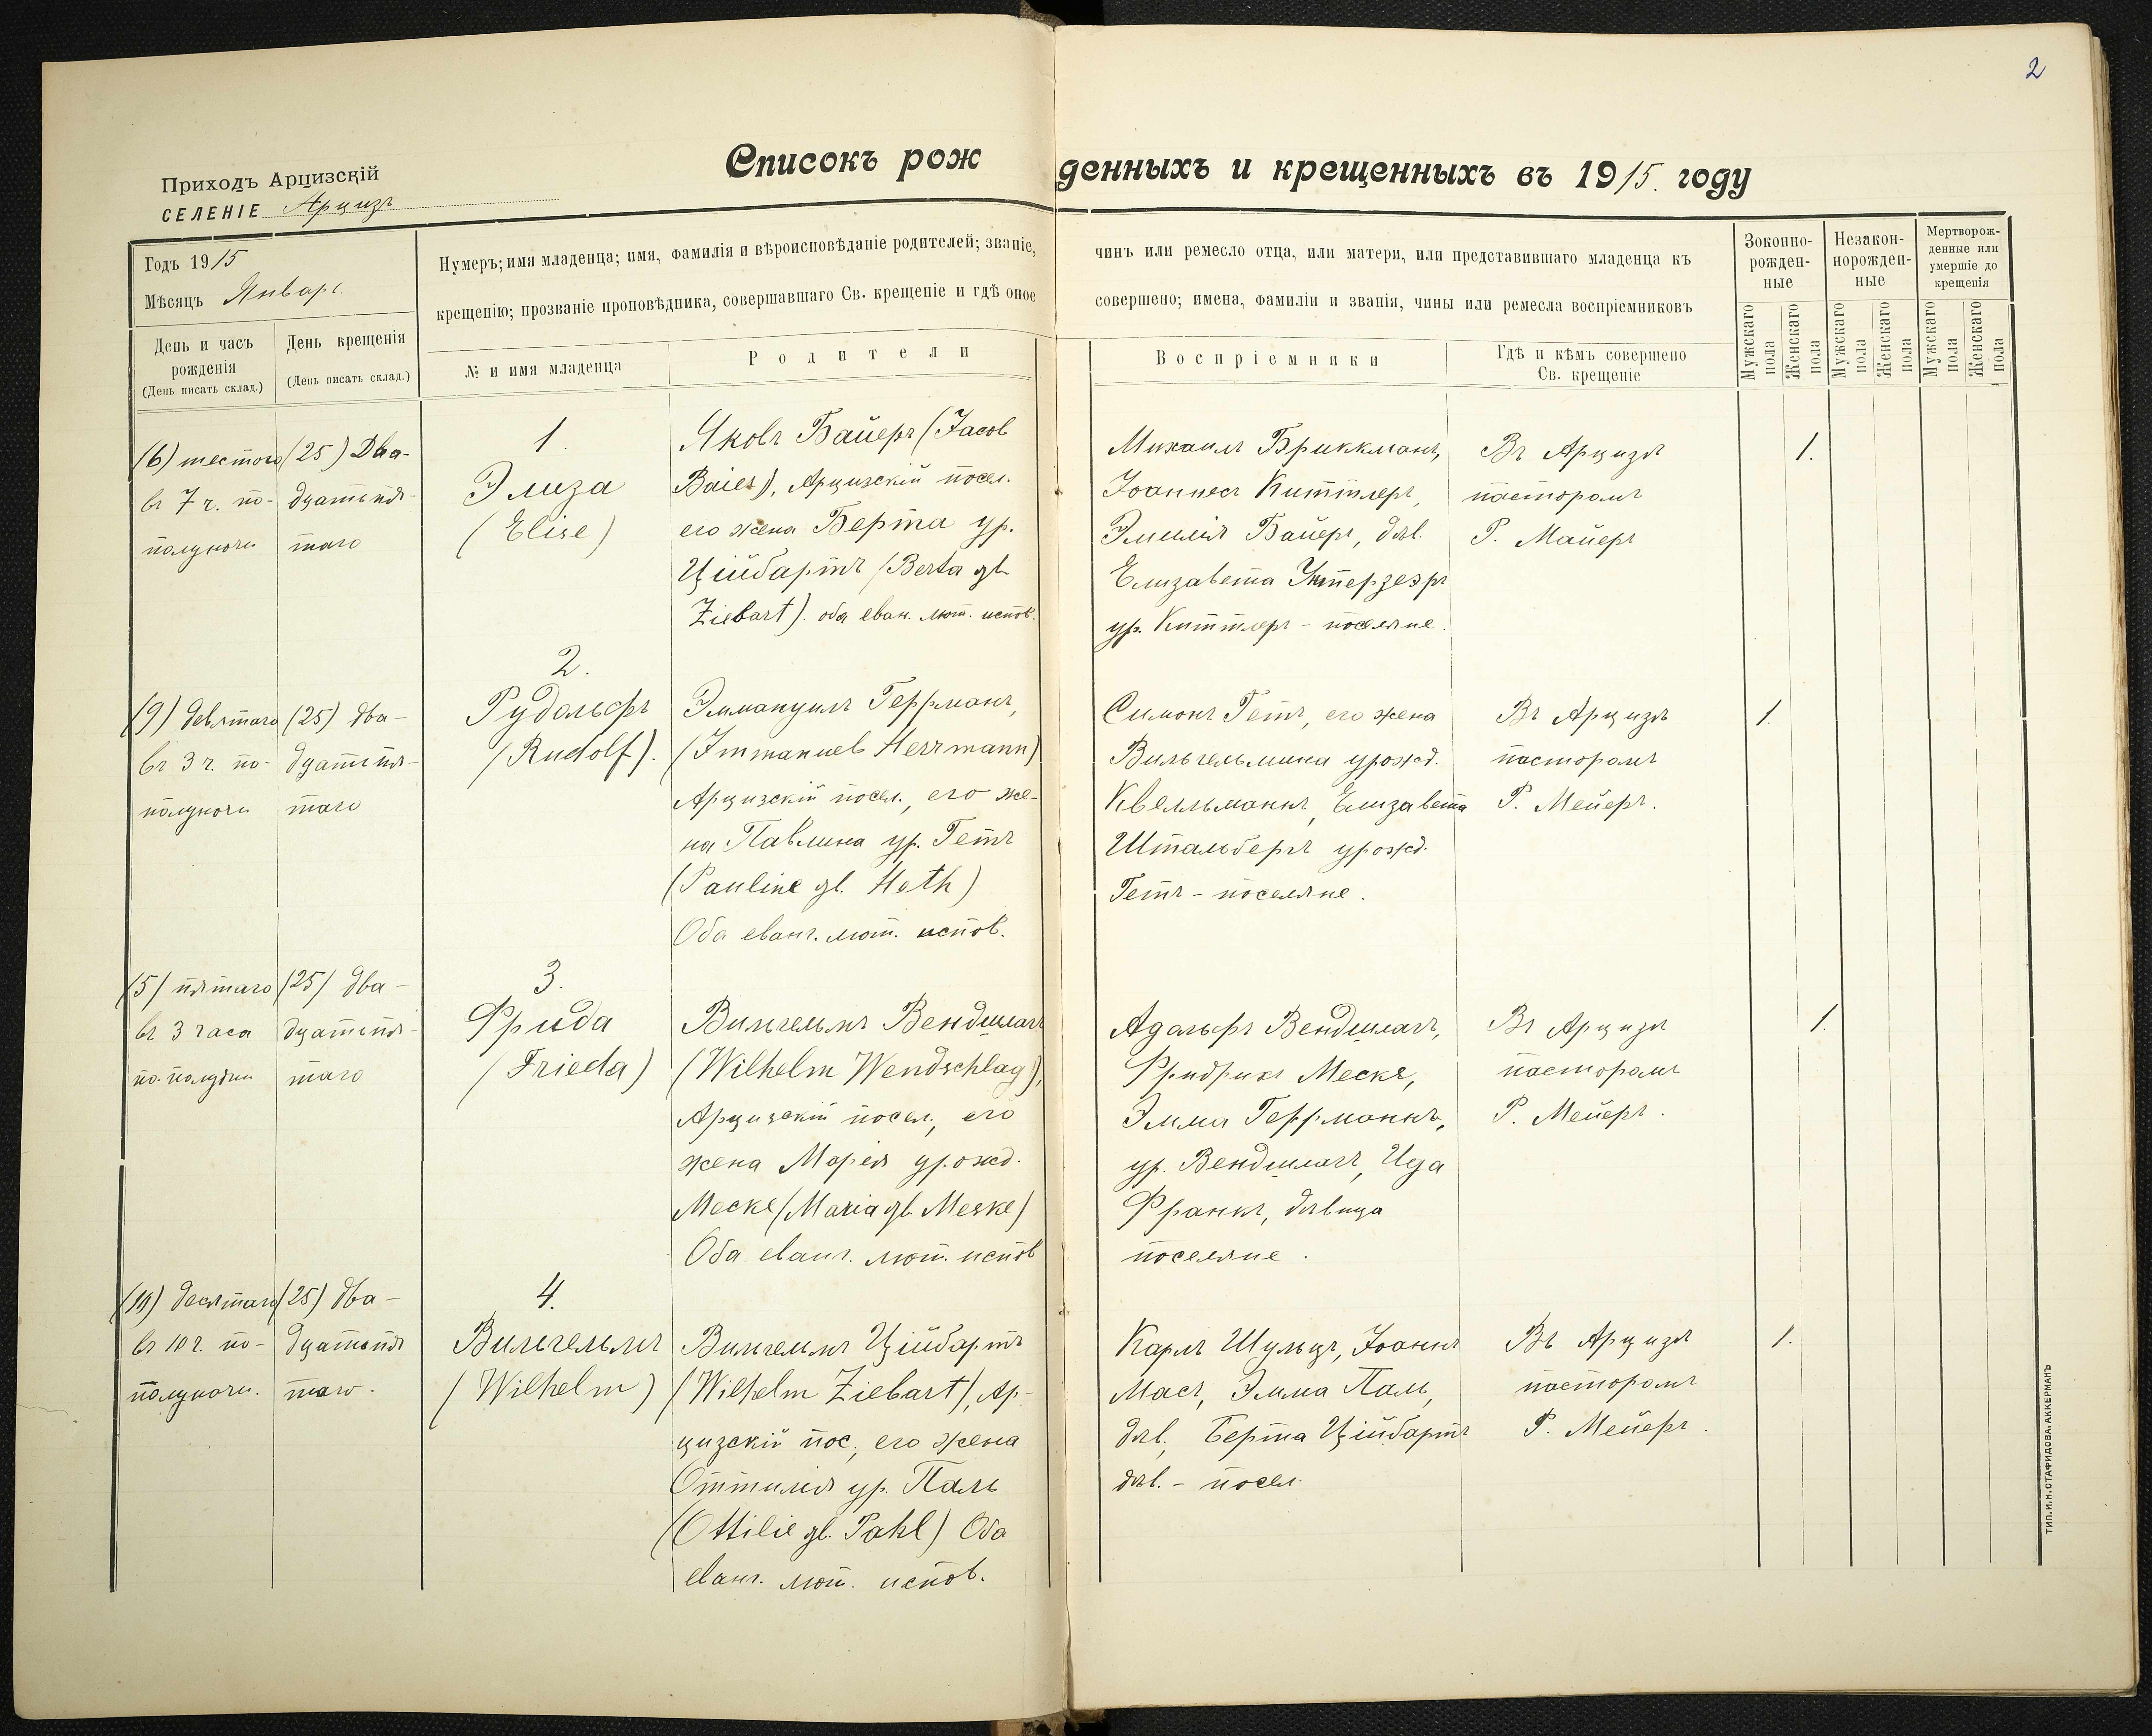 2
Приходъ Арцизскій
СЕЛЕНІЕ Арцизъ
Списокъ рожденныхъ и крещенныхъ въ 1915. году
Годъ 1915
Мѣсяцъ Январь.
День и часъ рожденія
(День писать склад.)
День крещенія
(День писать склад.)
Нумеръ; имя младенца; имя, фамилія и вѣроисповѣданіе родителей; званіе, чинъ или ремесло отца, или матери, или представившаго младенца къ
крещенію; прозваніе проповѣдника, совершавшаго Св. крещеніе и гдѣ оное совершено; имена, фамиліи и званія, чины или ремесла воспріемниковъ
№ и имя младенца
Родители
Воспріемники
Гдѣ и кѣмъ совершено
Св. крещеніе
Зоконно-
рожден-
ные
Незакон-
норожден-
ные
Мертворож-
денные или
умершіе до
крещенія
Мужскаго пола
Женскаго пола
Мужскаго пола
Женскаго пола
Мужскаго пола
Женскаго пола
(6) шестого
въ 7 ч. по-
полуночи
(25) Два-
дцатьпя-
таго
1.
Элиза
(Elise)
Яковъ Байеръ (Jacob
Baier), Арцизскій посел.
его жена Берта ур.
Ційбартъ (Berta gb.
Ziebart). оба еван. лют. испов.
Михаилъ Бриккманъ,
Іоаннесъ Киттлеръ,
Эмилія Байеръ, дѣв.
Елизавета Унтерзегръ
ур. Киттлеръ - поселяне.
Въ Арцизѣ
пасторомъ
Р. Майеръ
1.
(9) девятаго
въ 3 ч. по-
полуночи
(25) два-
дцатьпя-
таго
2.
Рудольфъ
(Rudolf).
Эммануилъ Геррманъ,
(Immanuel Herrmann)
Арцизскій посел., его же-
на Павлина ур. Гетъ
(Pauline gb. Hoth)
Оба еванг. лют. испов.
Симонъ Гетъ, его жена
Вильгельмина урожд.
Квелльманнъ, Елизавета
Штальбергъ урожд.
Гетъ - поселяне.
Въ Арцизѣ
пасторомъ
Р. Мейеръ.
1.
(5) пятаго
въ 3 часа
по-полудни
(25) два-
дцатьпя-
таго
3.
Фрида
(Frieda)
Вильгельмъ Вендшлагъ
(Wilhelm Wendschlag),
Арцизскій посел., его
жена Марія урожд.
Меске (Maria gb. Meske)
Оба еванг. лют. испов
Адольфъ Вендшлагъ,
Фридрихъ Меске,
Эмма Геррманнъ,
ур. Вендшлагъ, Ида
Франкъ, дѣвица
поселяне.
Въ Арцизѣ
пасторомъ
Р. Мейеръ.
1.
(10) десятаго
въ 10 ч. по-
полуночи.
(25) два-
дцатьпя
таго.
4.
Вильгельмъ
(Wilhelm)
Вильгельмъ Ційбартъ
(Wilhelm Ziebart), Ар-
цизскій пос., его жена
Оттилія ур. Паль
(Ottilie gb. Pahl) Оба
еванг. лют. испов.
Карлъ Шульцъ, Іоаннъ
Масъ, Эмма Паль,
дѣв., Берта Ційбартъ
дѣв. - посел.
Въ Арцизѣ
пасторомъ
Р. Мейеръ.
1.
ТИП. И.Н. СТАФИДОВА. АККЕРМАНЪ